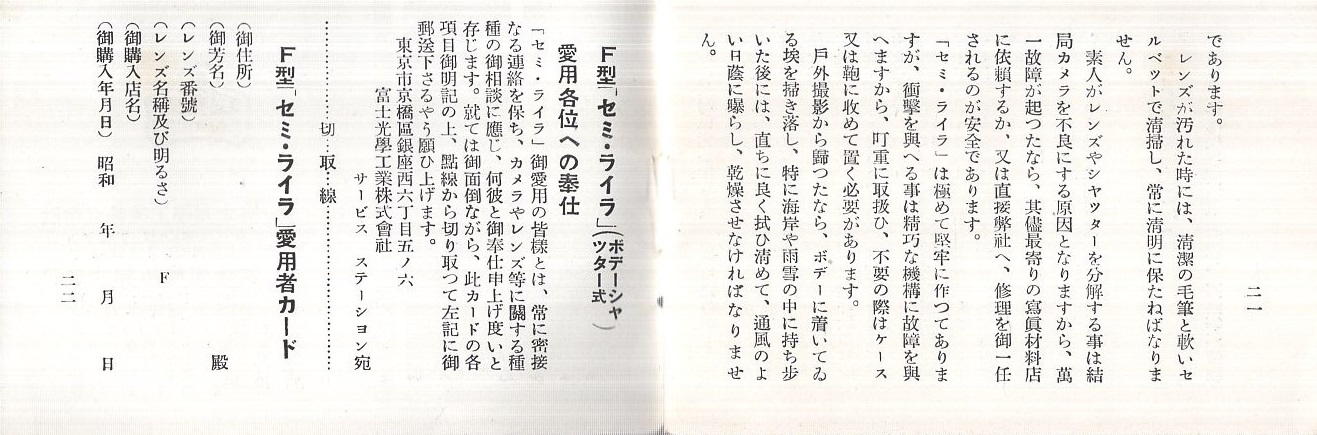 二一
であります。
レンズが汚れた時には、清潔の毛筆と軟いセ
ルベツトで清掃し、常に清明に保たねばなりま
せん。
素人がレンズやシヤツターを分解する事は結
局カメラを不良にする原因となりますから、萬
一故障が起つたなら、其儘最寄りの寫眞材料店
に依頼するか、又は直接弊社へ、修理を御一任
されるのが安全であります。
「セミ・ライラ」は極めて堅牢に作つてありま
すが、衝擊を與へる事は精巧な機構に故障を與
へますから、叮重に取扱ひ、不要の際はケース
又は鞄に收めて置く必要があります。
戶外撮影から歸つたなら、ボデーに着いてゐ
る埃を掃き落し、特に海岸や雨雪の中に持ち步
いた後には、直ちに良く拭ひ清めて、通風のよ
い日蔭に曝らし、乾燥させなければなりませ
ん。
F型「セミ・ライラ」(ボデーシャ
ツター式)
愛用各位への奉仕
「セミ・ライラ」御愛用の皆様とは、常に密接
なる連絡を保ち、カメラやレンズ等に關する種
種の御相談に應じ、何彼と御奉仕申上げ度いと
存じます。就ては御面倒ながら、此カードの各
項目御明記の上、點線から切り取つて左記に御
郵送下さるやう願ひ上げます。
東京市京橋區銀座西六丁目五ノ六
富士光學工業株式會社
サービス ステーション宛
切取線
F型「セミ・ライラ」愛用者カード
(御住所)
(御芳名) 殿
(レンズ番號)
(レンズ名稱及び明るさ) F
(御購入店名)
(御購入年月日) 昭和 年 月 日
二二